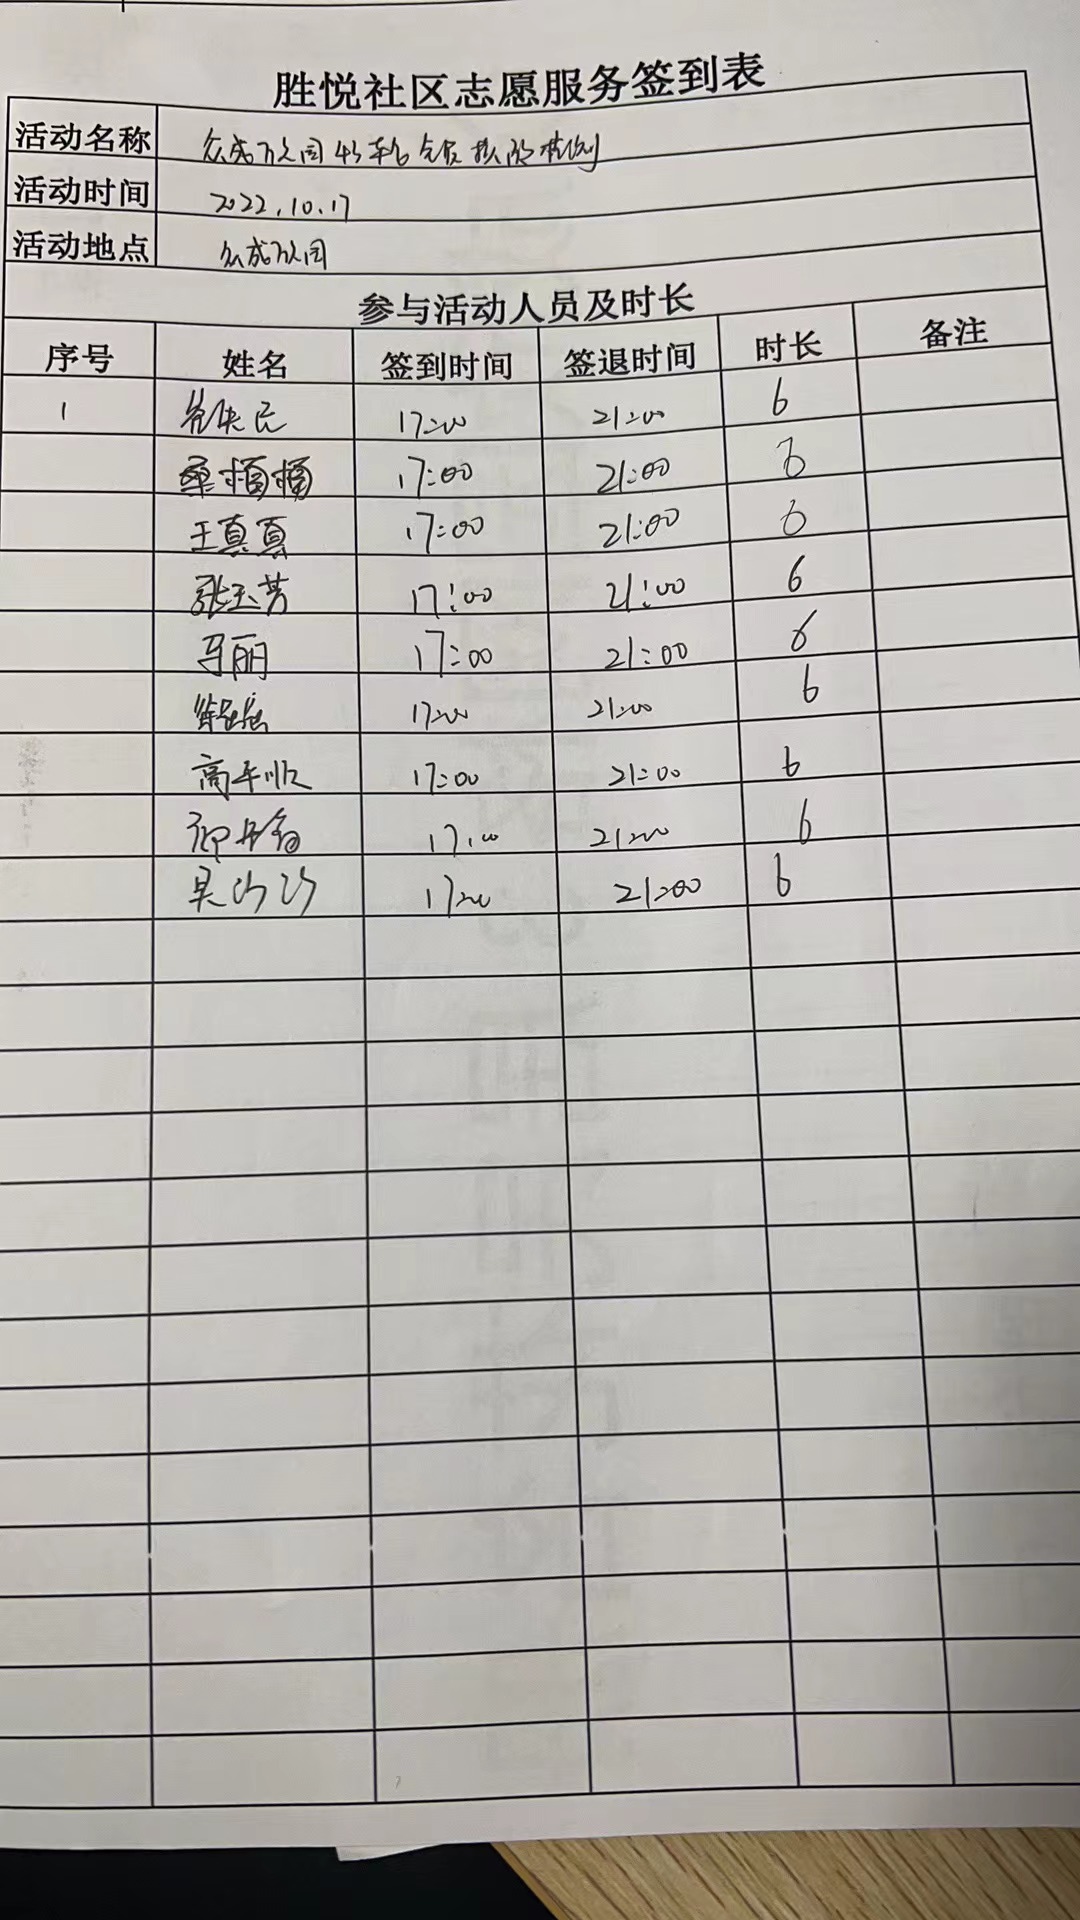 胜悦社区志愿服务签到表
活动名称 众成欣园49轮全员核酸检测
活动时间 2022.10.17
活动地点 众成欣园
参与活动人员及时长
序号 姓名 签到时间 签退时间 时长 备注
1 17:00 21:00 6
桑楠楠 17:00 21:00 6
王真真 17:00 21:00 6
张玉芳 17:00 21:00 6
马丽 17:00 21:00 6
17:00 21:00 6
高平顺 17:00 21:00 6
17:00 21:00 6
吴沙沙 17:00 21:00 6